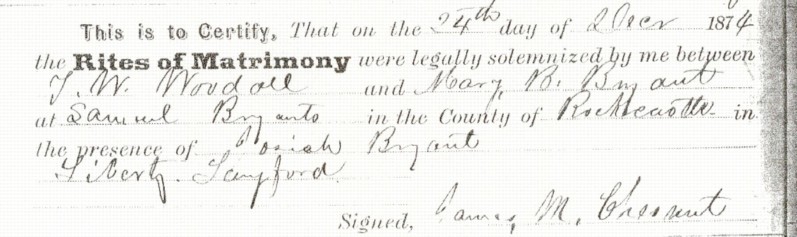 This is to Certify, That on the 24th day of Decr 1874
the Rites of Matrimony were legally solemnized by me between
T. W. Woodall and Mary B. Bryant
at Samuel Bryants in the County of Rockcastle in
the presence of Josiah Bryant
Liberty Langford.
Signed, James M. Chesnut